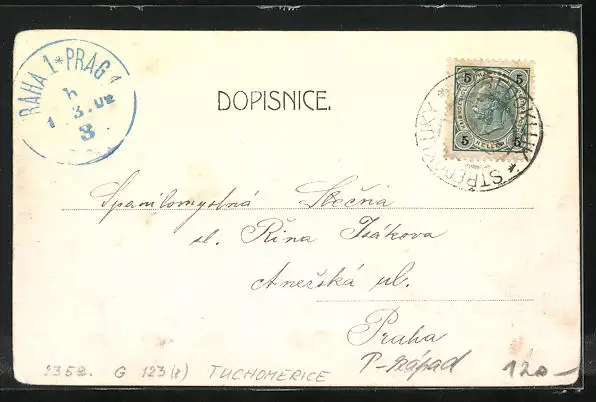 PRAHA 1 * PRAG 1
3
DOPISNICE.
5 5
5 5
STŘEDOKLUKY *
Spanilomyslná Slečna
sl. Řina Isákova
Anežská ul.
Praha
P-západ
G 123(8) TUCHOMERICE
120-